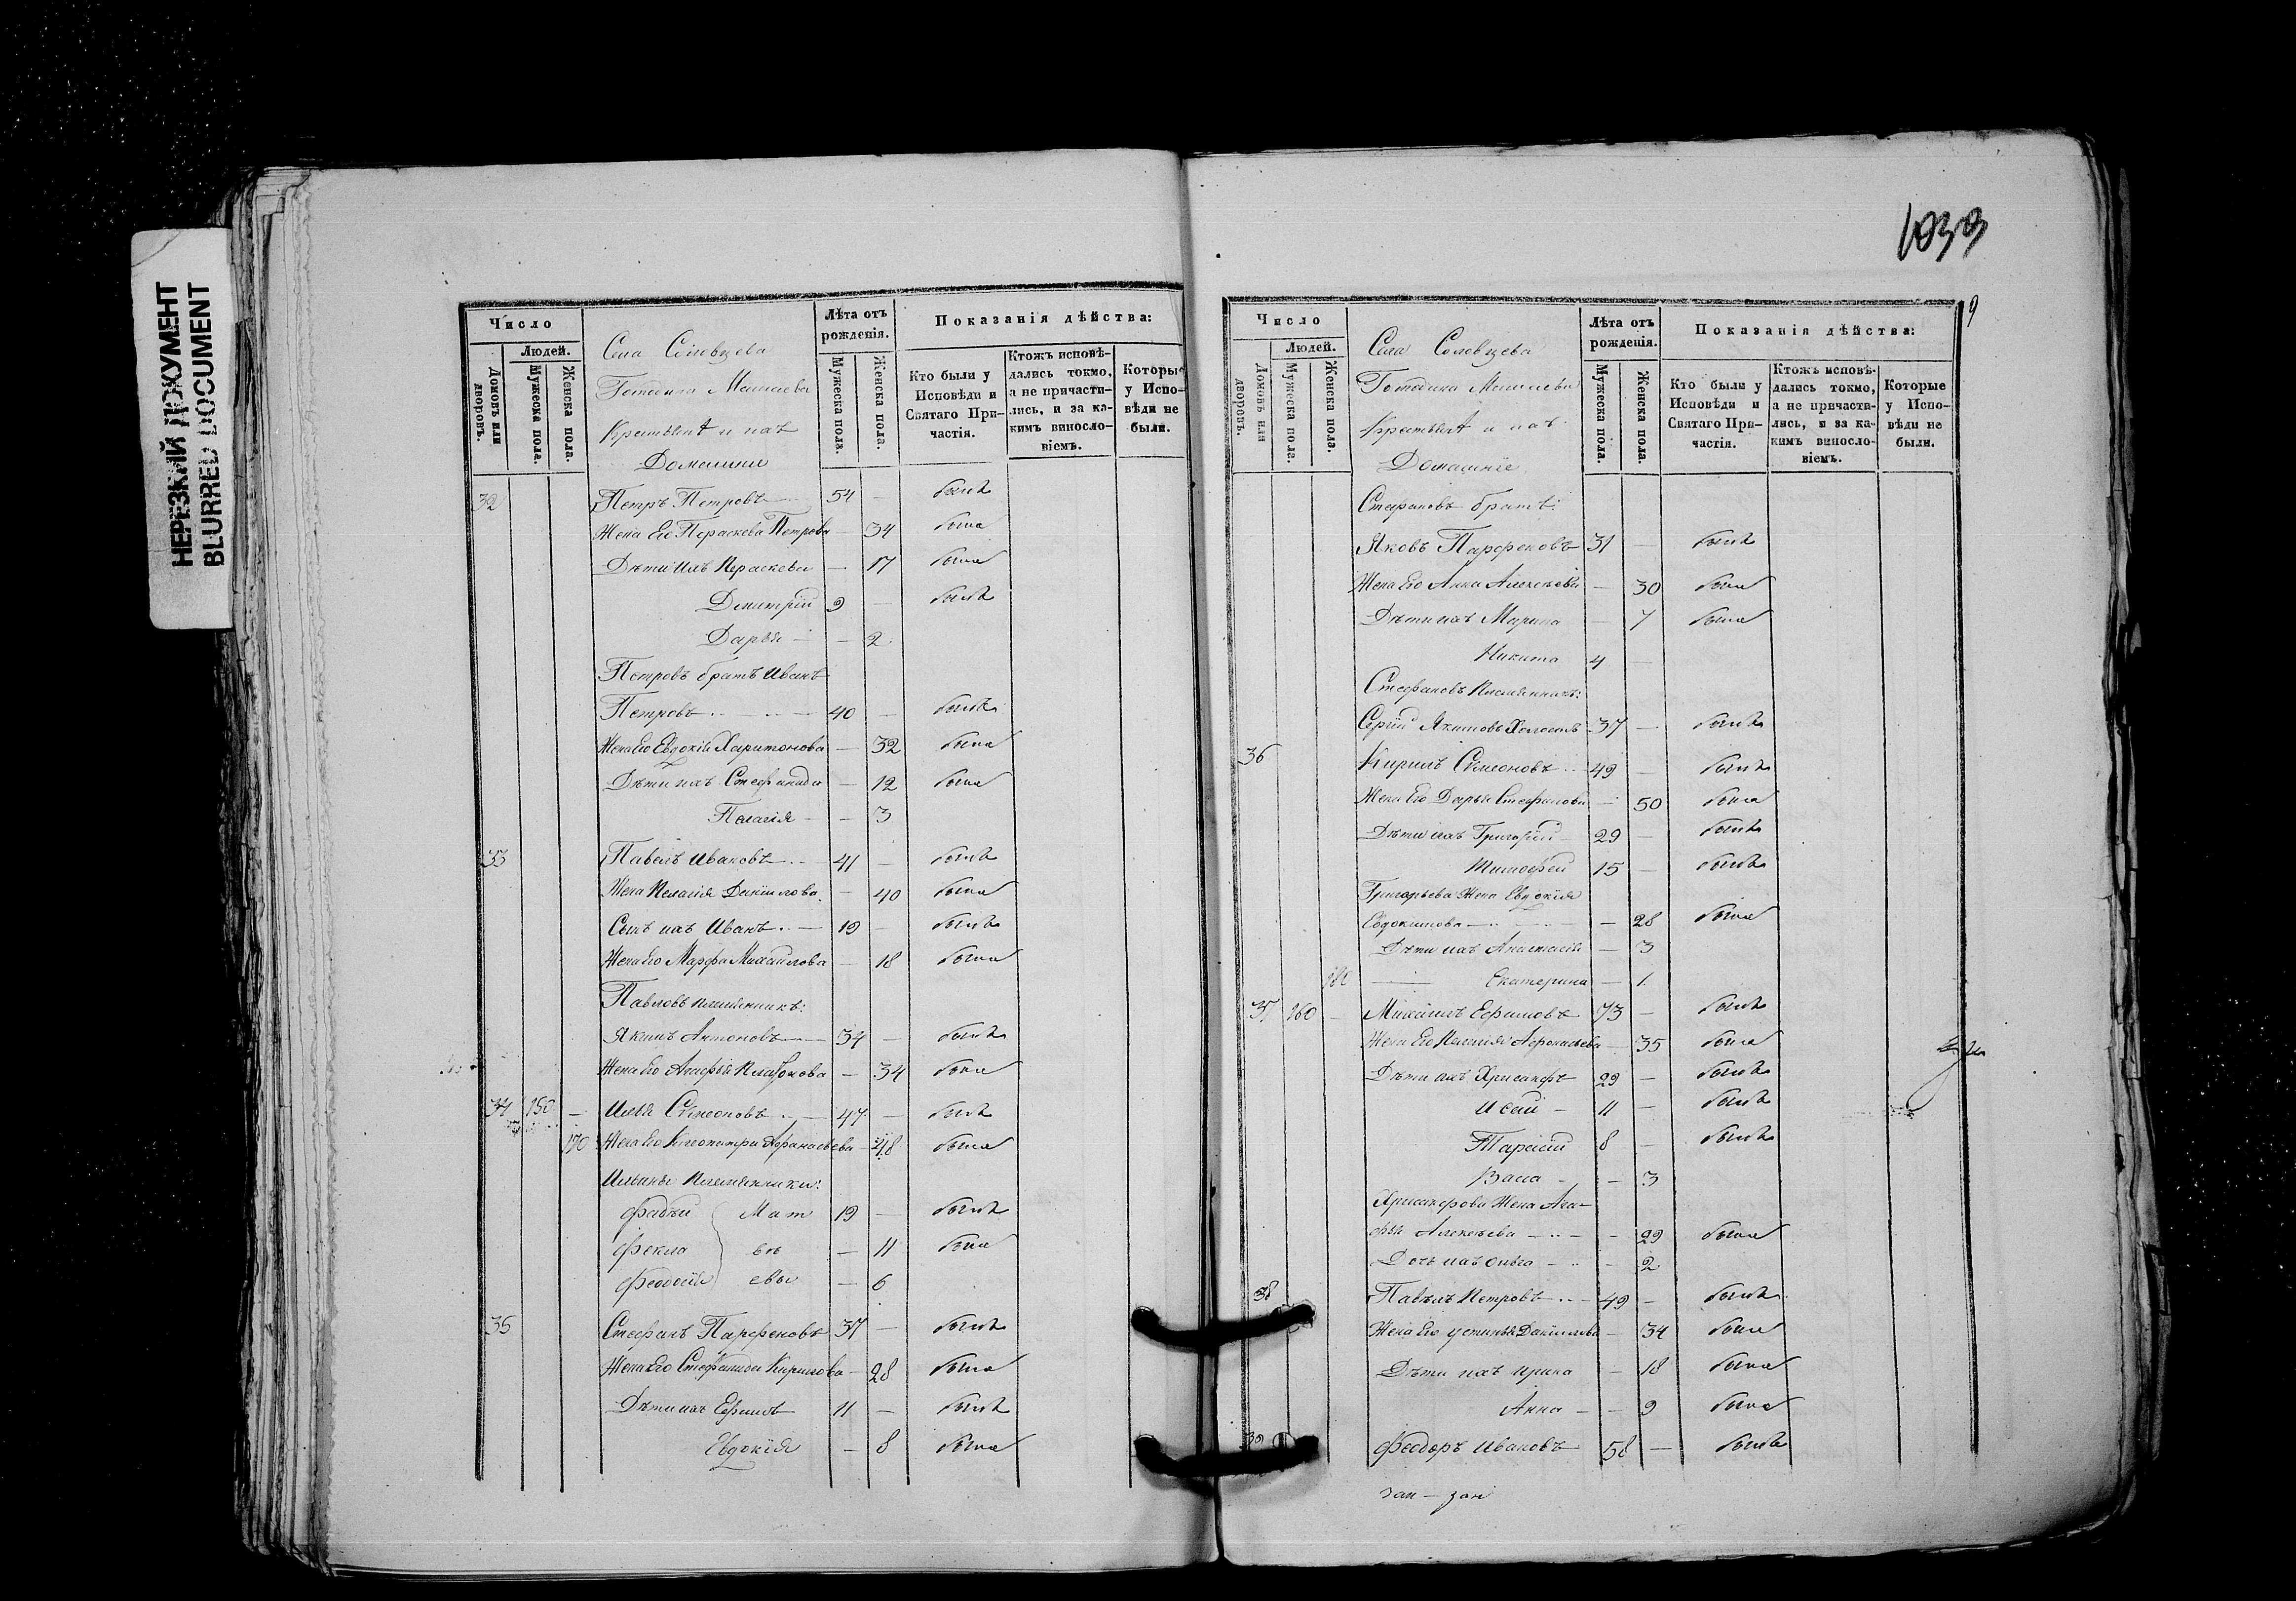 НЕРЕЗКИЙ ДОКУМЕНТ
BLURRED DOCUMENT
Число
Людей.
Домовъ или дворовъ.
Мужеска пола.
Женска пола.
Села Соловцева
Крестьянѣ и ихъ
Домашнии
Лѣта отъ рожденія.
Мужеска пола.
Женска пола.
Показанія дѣйства:
Кто были у Исповѣди и Святаго При-частія.
Ктожъ исповѣ-дались токмо, а не причасти-лись, и за ка-кимъ виносло-віемъ.
Которые у Испо-вѣди не были.
32 Петръ Петровъ 54 — былъ
Жена Его Параскева Петрова — 34 была
Дѣти ихъ Параскева — 17 была
Димитрій 9 — былъ
Дарья — 2
Петровъ братъ Иванъ
Петровъ 40 — былъ
Жена Его Евдокія Харитонова — 32 была
Дѣти ихъ Стефанида — 12 была
Пелагія — 3
33 Павелъ Ивановъ 41 — былъ
Жена Пелагія Даниилова — 40 была
Сынъ ихъ Иванъ 19 — былъ
Жена Его Марфа Михайлова — 18 была
Павловъ племянникъ:
Якимъ Антоновъ 34 — былъ
Жена Его Агафья Платонова — 34 была
34 150 — Илья Симеоновъ 47 — былъ
170 Жена Его Клеопатра Афанасьева — 48 была
Ильины племянники:
Фадѣй Мат 19 — былъ
Фекла вѣ — 11 была
Феодосія евы — 6
35 Стефанъ Парфеновъ 37 — былъ
Жена Его Стефанида Кирилова — 28 была
Дѣти ихъ Ефимъ 11 — былъ
Евдокія — 8 была
1033
9
Число
Людей.
Домовъ или дворовъ.
Мужеска пола.
Женска пола.
Села Соловцева
Крестьянѣ и ихъ
Домашніе
Лѣта отъ рожденія.
Мужеска пола.
Женска пола.
Показанія дѣйства:
Кто были у Исповѣди и Святаго При-частія.
Ктожъ исповѣ-дались токмо, а не причасти-лись, и за ка-кимъ виносло-віемъ.
Которые у Испо-вѣди не были.
Стефановъ братъ:
Яковъ Парфеновъ 31 — былъ
Жена Его Анна Алексѣева — 30 была
Дѣти ихъ Марина — 7 была
Никита 4 —
Стефановъ племянникъ:
Сергій Якимовъ Холостъ 37 — былъ
36 Кирилъ Симеоновъ 49 — былъ
Жена Его Дарья Стефанова — 50 была
Дѣти ихъ Григорій 29 — былъ
Тимофей 15 — былъ
Григорьева Жена Евдокія
Евдокимова — 28 была
Дѣти ихъ Анастасія — 3
180 Екатерина — 1
37 160 — Михаилъ Ефимовъ 73 — былъ
Жена Его Пелагія Афанасьева — 35 была
Дѣти ихъ Хрисанфъ 29 — былъ
Исай 11 — былъ
Тарасій 8 — былъ
Васса — 3
Хрисанфова Жена Ага-
фья Алексѣева — 29 была
Дочь ихъ Ольга — 2
38 Павелъ Петровъ 49 — былъ
Жена Его Устинья Даниилова — 34 была
Дѣти ихъ Ирина — 18 была
Анна — 9 была
39 Феодоръ Ивановъ 58 — былъ